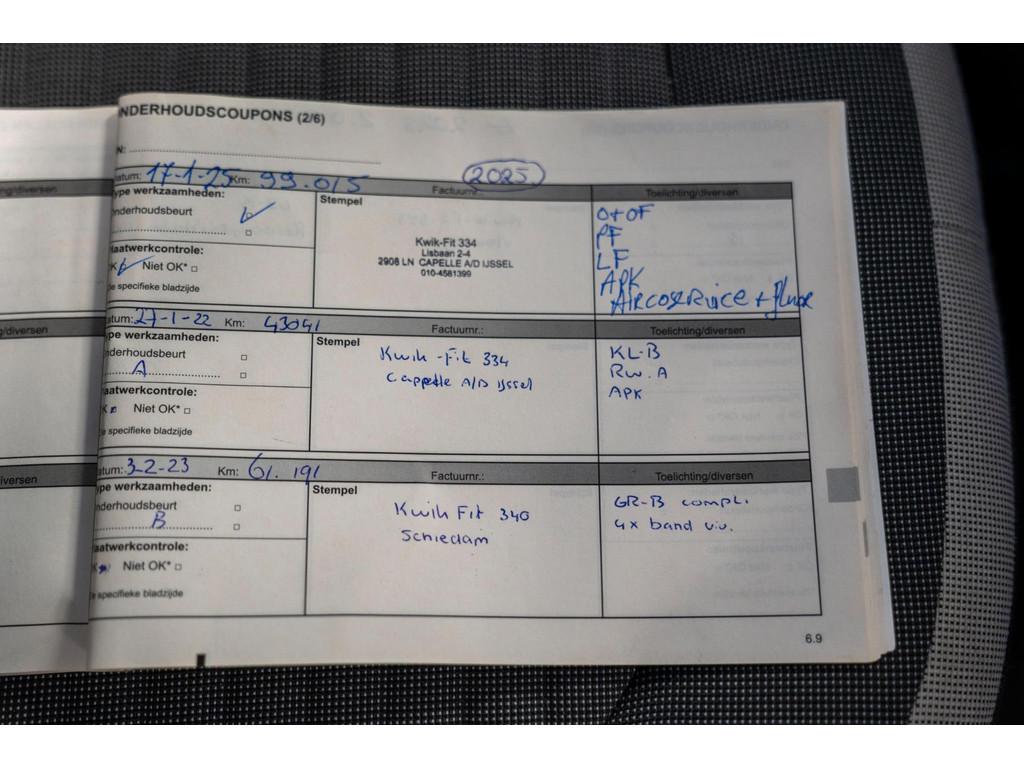 NDERHOUDSCOUPONS (2/6)
N:
atum: 17-1-25 Km: 99.015 Factuurnr.: 2025 Toelichting/diversen
ype werkzaamheden:
nderhoudsbeurt
aatwerkcontrole:
K Niet OK*
e specifieke bladzijde
Stempel
Kwik-Fit 334
Lisbaan 2-4
2908 LN CAPELLE A/D IJSSEL
010-4581399
O+OF
PF
LF
APK
AIRCOSERVICE +
atum: 27-1-22 Km: 43041 Factuurnr.: Toelichting/diversen
ype werkzaamheden:
nderhoudsbeurt
A
aatwerkcontrole:
K Niet OK*
e specifieke bladzijde
Stempel
Kwik-Fit 334
Cappelle A/D IJssel
KL-B
Rw.A
APK
atum: 3-2-23 Km: 61.191 Factuurnr.: Toelichting/diversen
ype werkzaamheden:
nderhoudsbeurt
B
aatwerkcontrole:
K Niet OK*
e specifieke bladzijde
Stempel
Kwik Fit 340
Schiedam
GR-B compl.
4x band viv.
ng/diversen
g/diversen
iversen
6.9